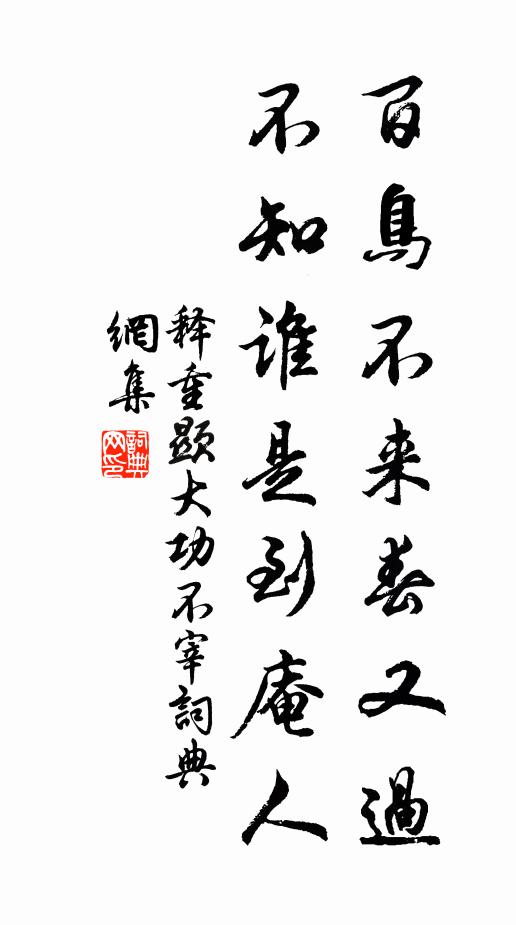 百鳥不来春又過
不知誰是到庵人
释重顯大功不宰詞典
網集
詞典
网印